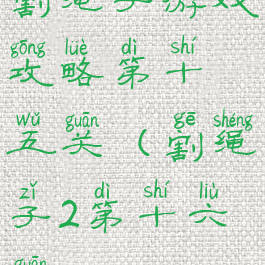 割绳子游戏
gōng lüè dì shí
攻略第十
wǔ guān gē shéng
五关（割绳
zǐ dì shí liù
子2第十六
guān